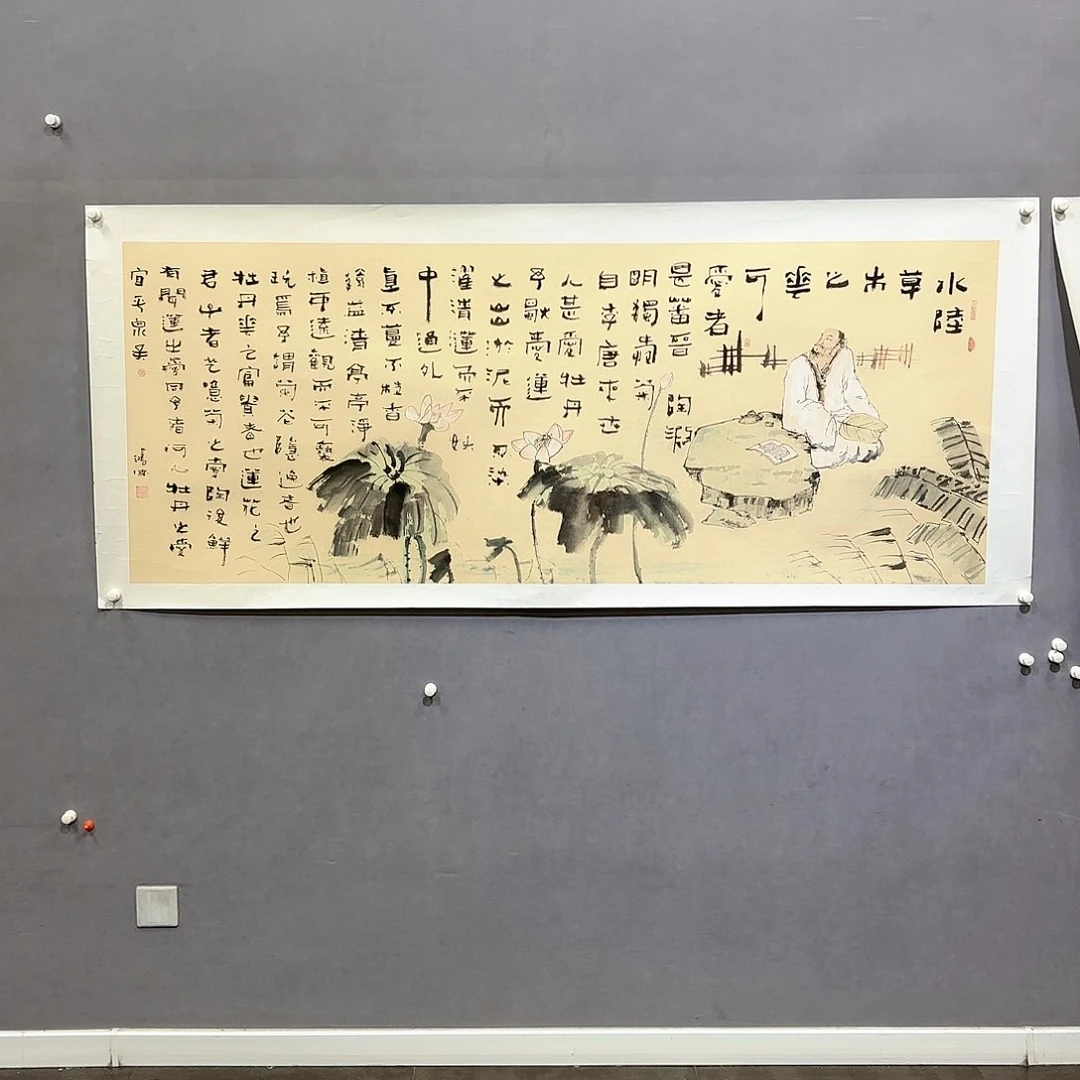 水陸
草
木
之
華
可
愛者
是蕃晉陶淵
明獨愛菊
自李唐來世
人甚愛牡丹
予獨愛蓮
之出淤泥而不染
濯清蓮而不妖
中通外
直不蔓不枝香
益清亭亭淨
植可遠觀而不可褻
玩焉予謂菊花隱逸者也
牡丹華之富貴者也蓮花之
君子者也噫菊之愛陶後鮮
有聞蓮之愛同予者何人牡丹之愛
宜乎眾矣